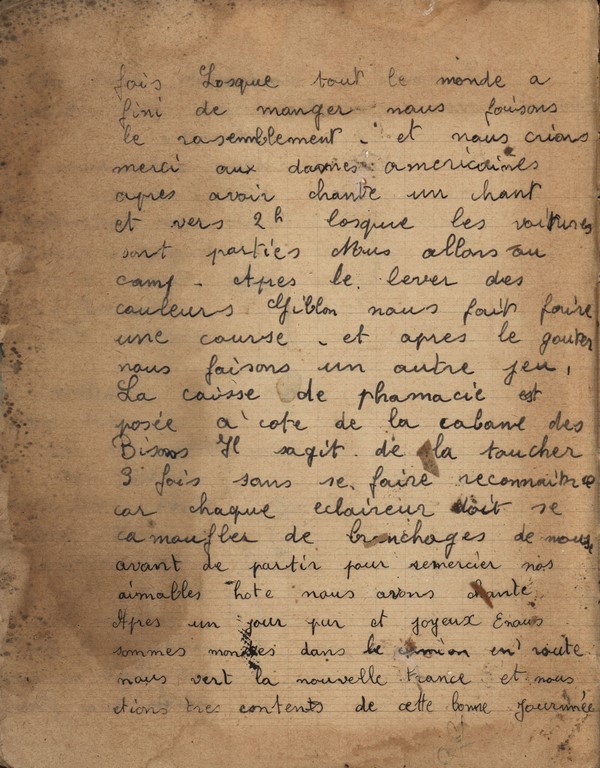 fois Losque tout le monde a
fini de manger nous faisons
le rasemblement . et nous crions
merci aux dames americaines
apres avoir chante un chant
et vers 2h losque les voitures
sont parties Nous allons au
camp . Apres le lever des
couleurs Giblon nous fait faire
une course . et apres le gouter
nous faisons un autre jeu ,
La caisse de pharmacie est
posée a cote de la cabane des
Bisons Il sagit de la toucher
3 fois sans se faire reconnaitre
car chaque eclaireur doit se
camoufler de branchages de
avant de partir pour remercier nos
aimables hote nous avons chante
Apres un jour pur et joyeux
sommes dans le camion en route
nous vert la nouvelle france et nous
etions tres contents de cette bonne journnée